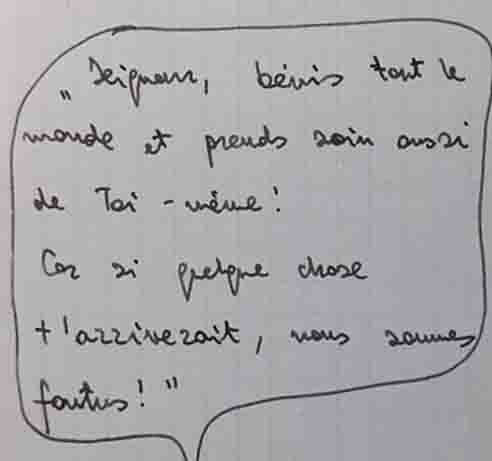 „Seigneur, bénis tout le
monde et prends soin aussi
de Toi-même!
Car si quelque chose
t'arriverait, nous sommes
foutus!"